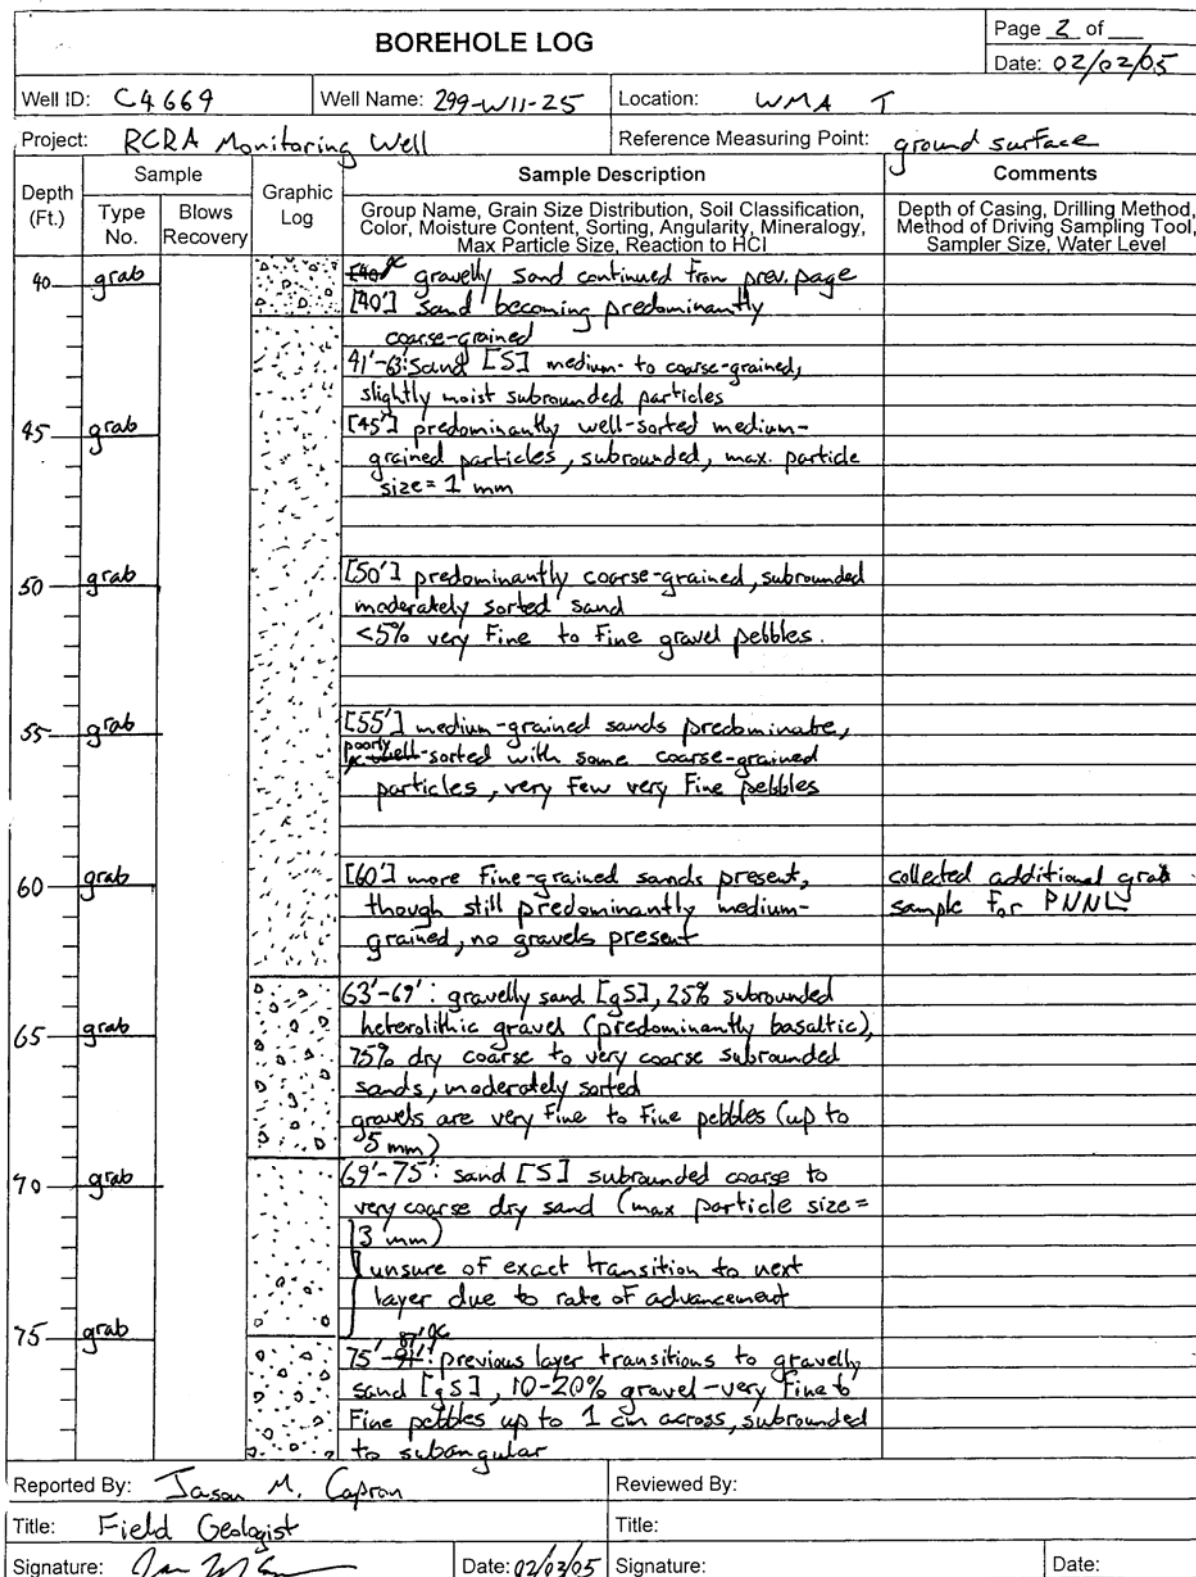 BOREHOLE LOG
Page 2 of
Date: 02/02/05
Well ID: C4669
Well Name: 299-W11-25
Location: WMA T
Project: RCRA Monitoring Well
Reference Measuring Point: ground surface
Depth (Ft.)
Sample
Type No.
Blows Recovery
Graphic Log
Sample Description
Group Name, Grain Size Distribution, Soil Classification,
Color, Moisture Content, Sorting, Angularity, Mineralogy,
Max Particle Size, Reaction to HCl
Comments
Depth of Casing, Drilling Method,
Method of Driving Sampling Tool,
Sampler Size, Water Level
40 grab
gravelly sand continued from prev. page
[40'] sand becoming predominantly
coarse-grained
41'-63': Sand [S] medium- to coarse-grained,
slightly moist subrounded particles
45 grab
[45'] predominantly well-sorted medium-
grained particles, subrounded, max. particle
size = 1 mm
50 grab
[50'] predominantly coarse-grained, subrounded
moderately sorted sand
<5% very fine to fine gravel pebbles.
55 grab
[55'] medium-grained sands predominate,
poorly well-sorted with some coarse-grained
particles, very few very fine pebbles
60 grab
[60'] more fine-grained sands present,
though still predominantly medium-
grained, no gravels present
collected additional grab
sample for PNNL
63'-69': gravelly sand [gS], 25% subrounded
65 grab
heterolithic gravel (predominantly basaltic),
75% dry coarse to very coarse subrounded
sands, moderately sorted
gravels are very fine to fine pebbles (up to
5 mm)
70 grab
69'-75': sand [S] subrounded coarse to
very coarse dry sand (max particle size =
3 mm)
unsure of exact transition to next
layer due to rate of advancement
75 grab
87' JC
75'-91': previous layer transitions to gravelly
sand [gS], 10-20% gravel - very fine to
fine pebbles up to 1 cm across, subrounded
to subangular
Reported By: Jason M. Capron
Reviewed By:
Title: Field Geologist
Title:
Signature:
Date: 02/03/05
Signature:
Date: